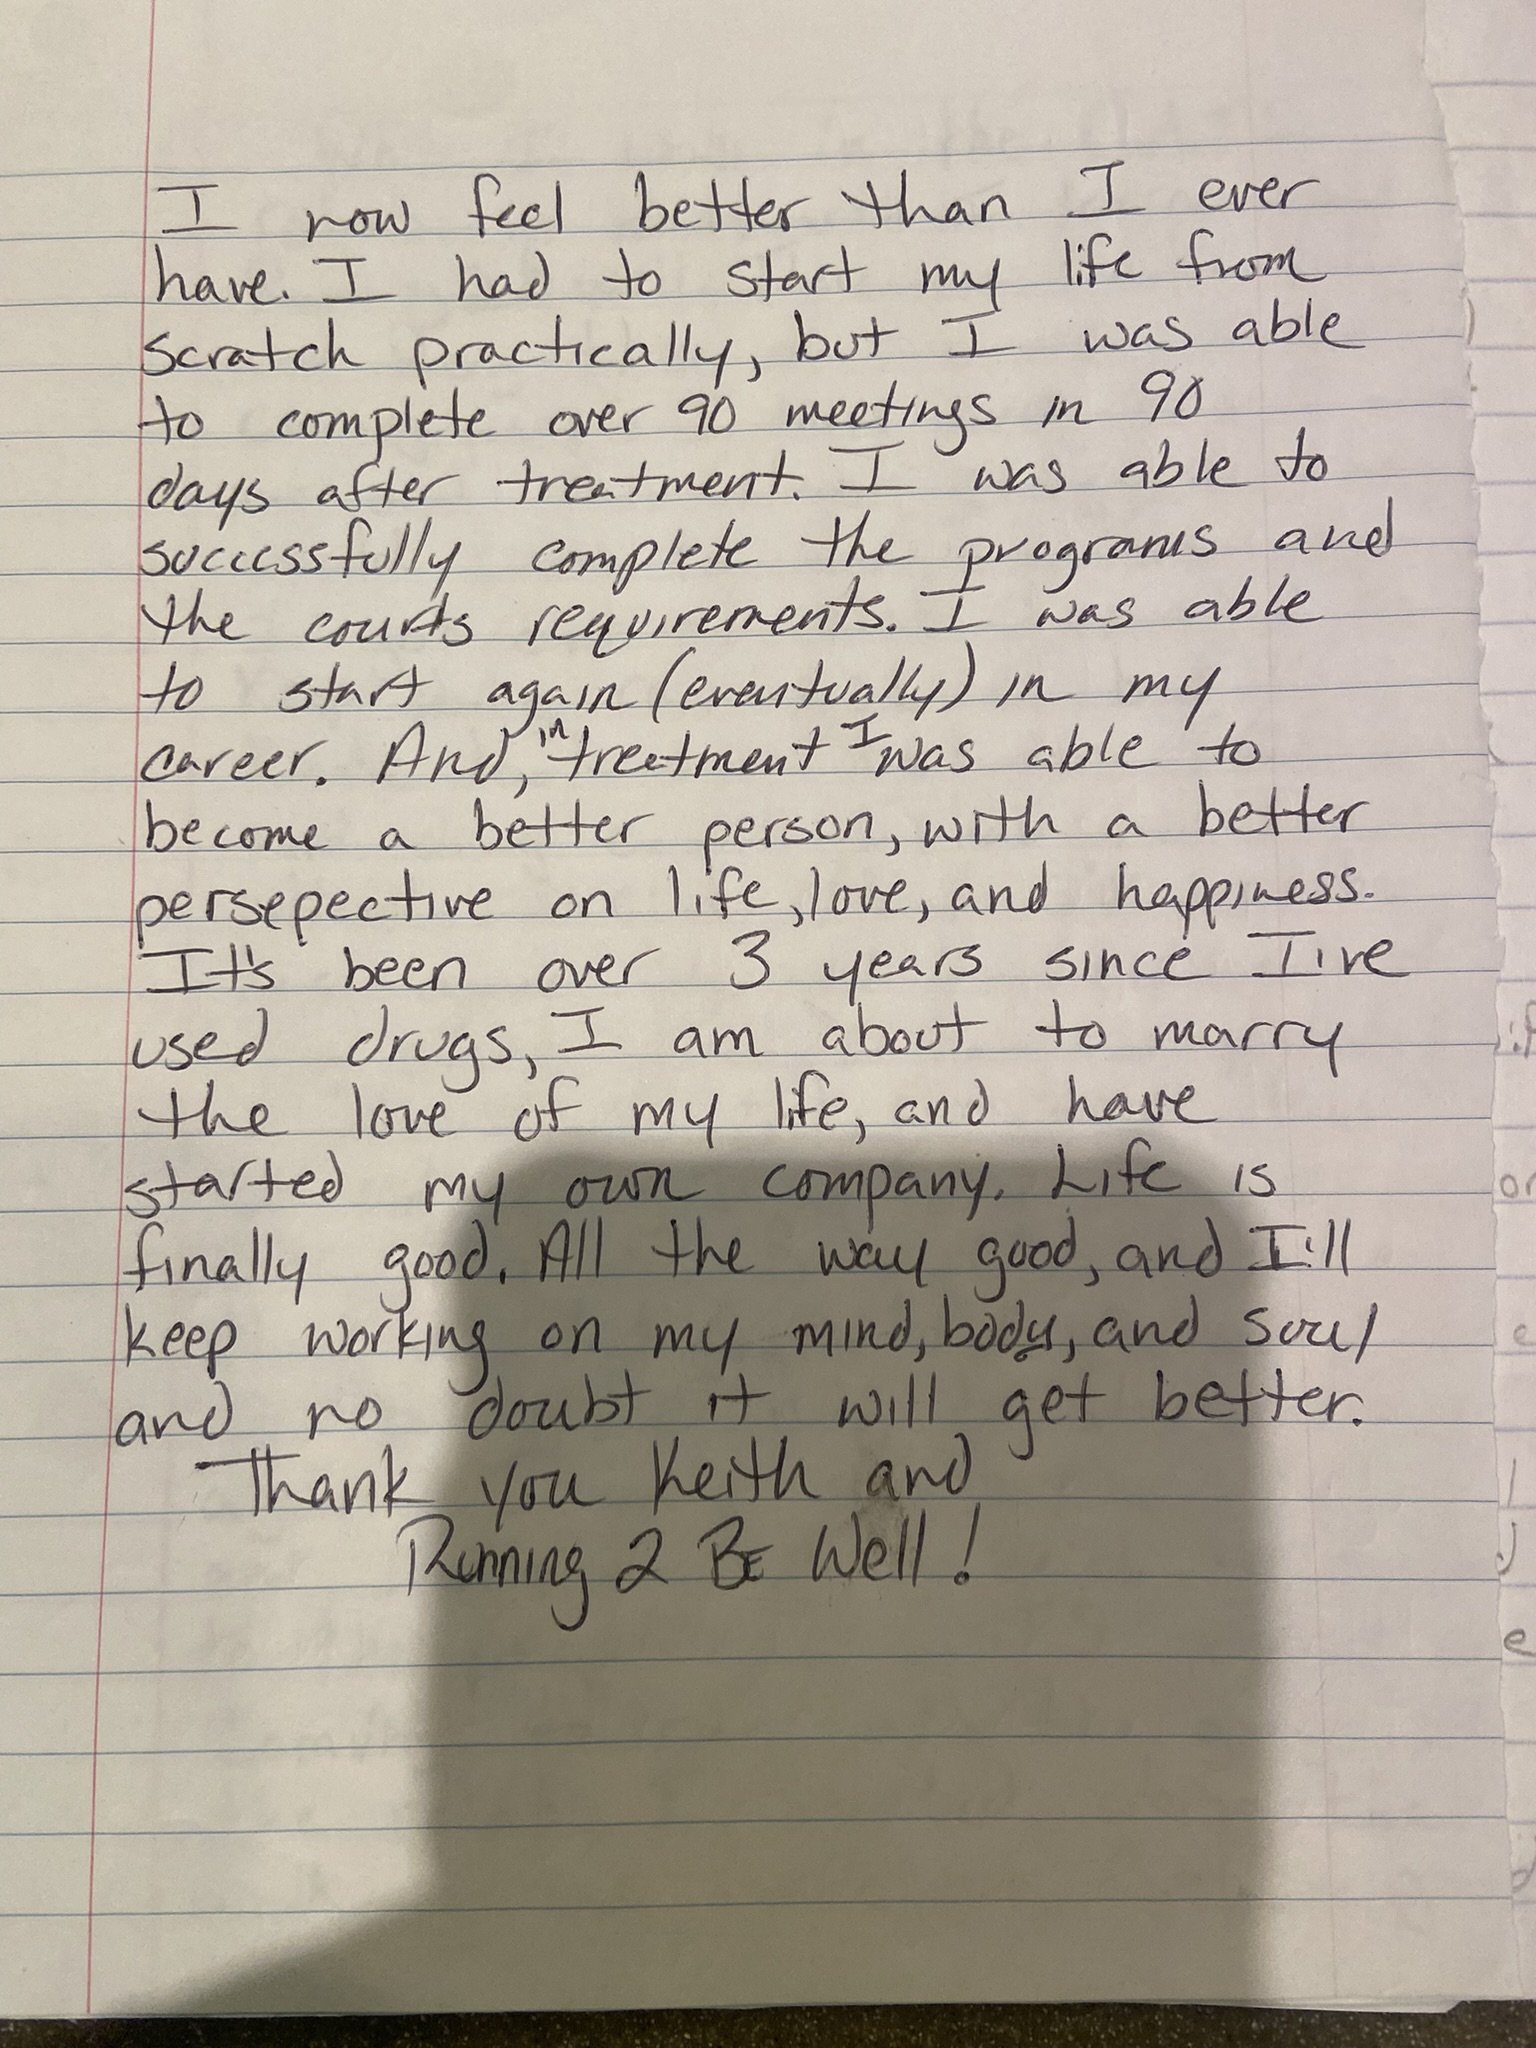 I now feel better than I ever
have. I had to start my life from
scratch practically, but I was able
to complete over 90 meetings in 90
days after treatment. I was able to
successfully complete the programs and
the courts requirements. I was able
to start again (eventually) in my
career. And, in treatment I was able to
become a better person, with a better
persepective on life, love, and happiness.
It's been over 3 years since I've
used drugs, I am about to marry
the love of my life, and have
started my own company. Life is
finally good. All the way good, and I'll
keep working on my mind, body, and soul
and no doubt it will get better.
Thank you Keith and
Running 2 BE Well!